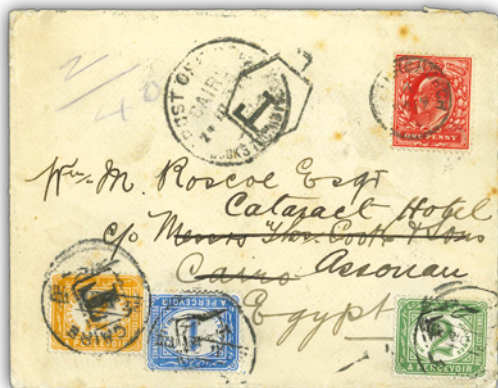 2/4d
POST OFFICE
CAIRO
COOK'S
T
ONE PENNY
Wm. M. Roscoe Esqr
Cataract Hotel
c/o Messrs Thos. Cook & Sons
Cairo Assouan
Egypt
CAIRO
T
A PERCEVOIR
1
A PERCEVOIR
2
A PERCEVOIR